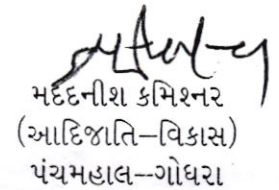 મદદનીશ કમિશ્નર
(આદિજાતિ–વિકાસ)
પંચમહાલ--ગોધરા